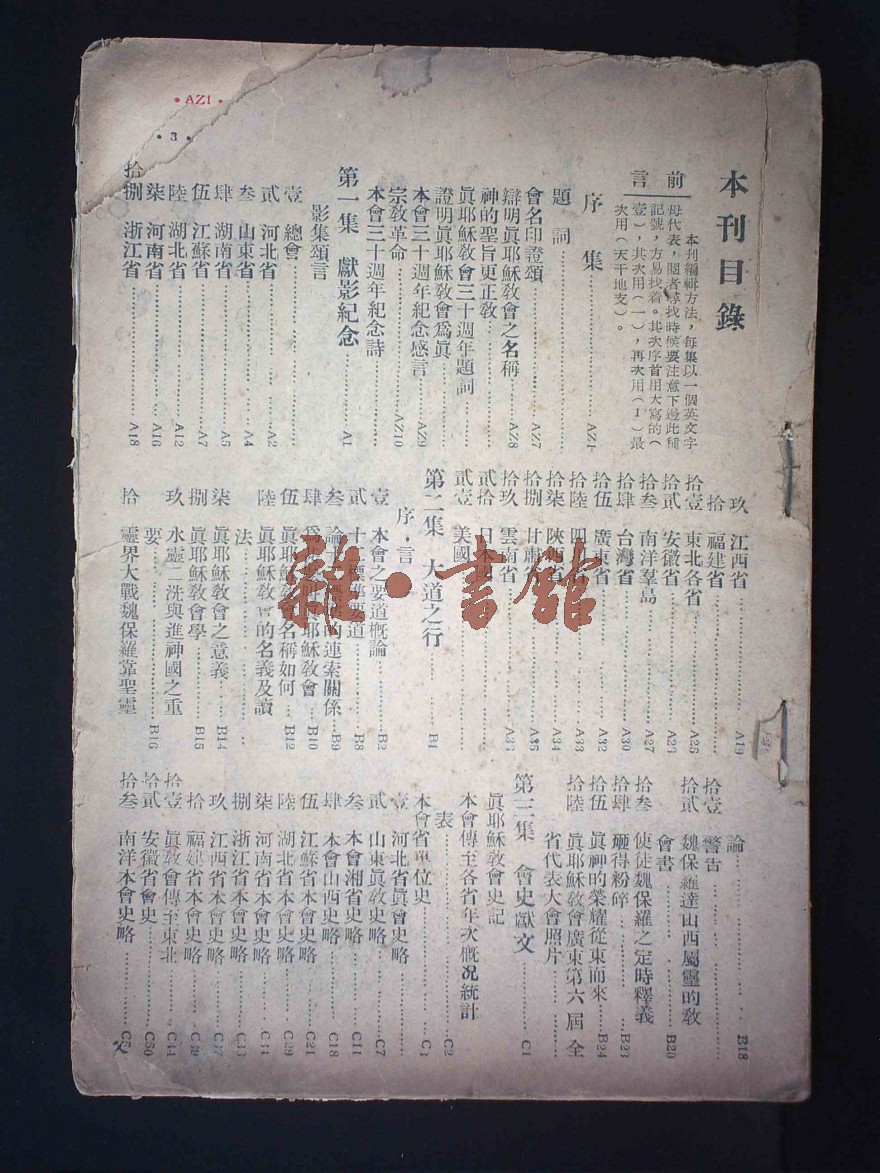 •AZ1•
•3•
本刊目錄
前言
本刊編輯方法，每集以一個英文字
母代表，閱者尋找時候要注意下邊此種
記號，方易找着。其次序首用大寫的（
壹），其次用（一），再次用（1）最
次用（天干地支）。
序　集……AZ1
題　詞……
會名印證頌……AZ7
辯明眞耶穌敎會之名稱……AZ8
神的聖旨更正敎……
眞耶穌敎會三十週年題詞……
證明眞耶穌敎會爲眞……
本會三十週年紀念感言……AZ9
宗敎革命……AZ10
本會三十週年紀念詩……
第一集　獻影紀念……A1
影集頌言
壹　總會……
貳　河北省……A2
叁　山東省……A4
肆　湖南省……A5
伍　江蘇省……A7
陸　湖北省……A12
柒　河南省……A16
拾捌　浙江省……A18
玖　江西省……A19
拾　福建省……
拾壹　東北各省……A25
拾貳　安徽省……A23
拾叁　南洋羣島……A27
拾肆　台灣省……A30
拾伍　廣東省……A32
拾陸　四　省……A33
拾柒　陝西省……A34
拾捌　甘肅　……A35
拾玖　雲南省……
貳拾　日本國……
貳壹　美國……
第二集　大道之行……B1
序言
壹　本會之要道槪論……B2
貳　十　標準要道……B8
叁　論　的連索關係……B9
肆　眞耶穌敎會……B10
伍　眞耶穌敎會名稱如何……B12
陸　眞耶穌敎會的名義及讀
法……
柒　眞耶穌敎會之意義……B14
捌　眞耶穌敎會學……B15
玖　水靈二洗與進神國之重
要……B16
拾　靈界大戰魏保羅靠聖靈
論……B18
拾壹　警告……
拾貳　魏保羅達山西屬靈的敎
會書……B20
拾叁　使徒魏保羅之定時釋義
拾肆　砸得粉碎……B23
拾伍　眞神的榮耀從東而來……B24
拾陸　眞耶穌敎會廣東第六屆全
省代表大會照片……
第三集　會史獻文……C1
眞耶穌敎會史記
本會傳至各省年次槪况統計
表……C2
本會省單位史……C4
壹　河北省眞會史略……
貳　山東眞敎史略……C7
叁　本會湘省史略……C11
肆　本會山西史略……C18
伍　江蘇省本會史略……C21
陸　湖北省本會史略……C29
柒　河南省本會史略……C31
捌　浙江省本會史略……C33
玖　江西省本會史略……C37
拾　福建省本會史略……C39
拾壹　眞敎會傳至東北……C44
拾貳　安徽省會史……C50
拾叁　南洋本會史略……
雜·書館